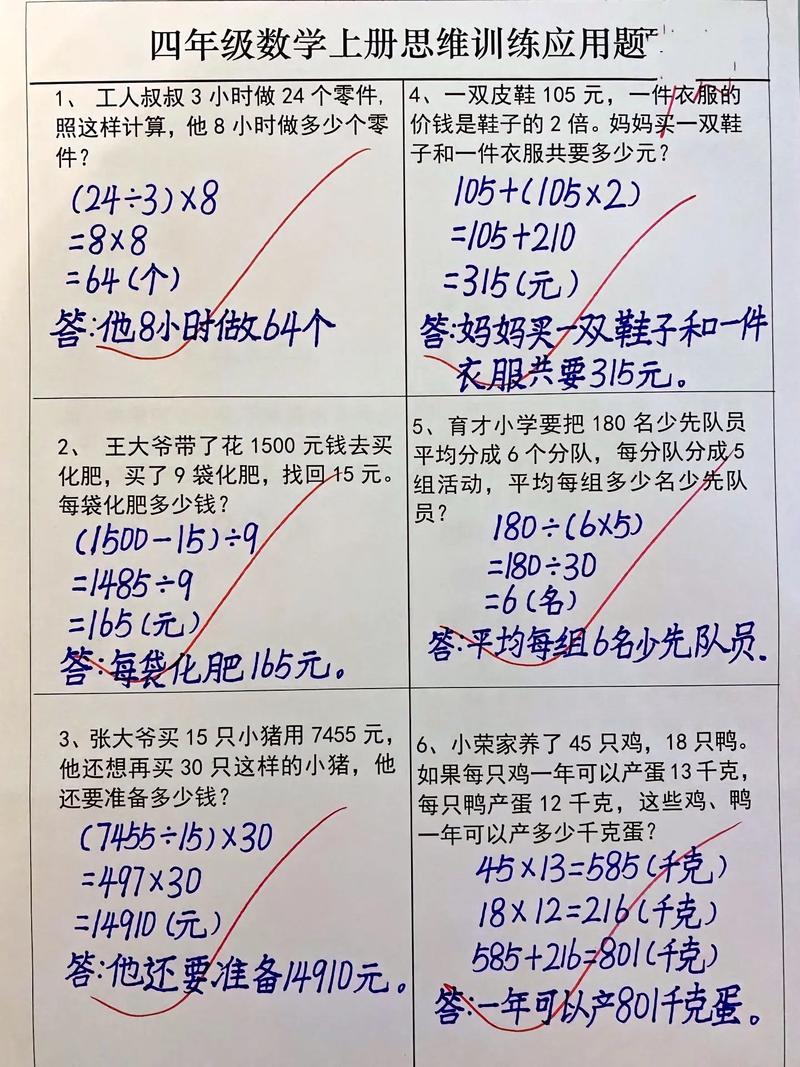 四年级数学上册思维训练应用题
1、 工人叔叔3小时做24个零件,
照这样计算，他8小时做多少个零
件？
(24÷3)×8
=8×8
=64(个)
答:他8小时做64个
2、 王大爷带了花1500元钱去买
化肥，买了9袋化肥，找回15元。
每袋化肥多少钱？
(1500-15)÷9
=1485÷9
=165(元)
答:每袋化肥165元。
3、张大爷买15只小猪用7455元，
他还想再买30只这样的小猪，他
还要准备多少钱？
(7455÷15)×30
=497×30
=14910(元)
答:他还要准备14910元。
4、一双皮鞋105元，一件衣服的
价钱是鞋子的2倍。妈妈买一双鞋
子和一件衣服共要多少元？
105+(105×2)
=105+210
=315(元)
答:妈妈买一双鞋子和一件
衣服共要315元。
5、育才小学要把180名少先队员
平均分成6个分队，每分队分成5
组活动，平均每组多少名少先队
员？
180÷(6×5)
=180÷30
=6(名)
答:平均每组6名少先队员.
6、小荣家养了45只鸡，18只鸭。
如果每只鸡一年可以产蛋13千克，
每只鸭产蛋12千克，这些鸡、鸭
一年可以产多少千克蛋？
45×13=585(千克)
18×12=216(千克)
585+216=801(千克)
答:一年可以产801千克蛋。